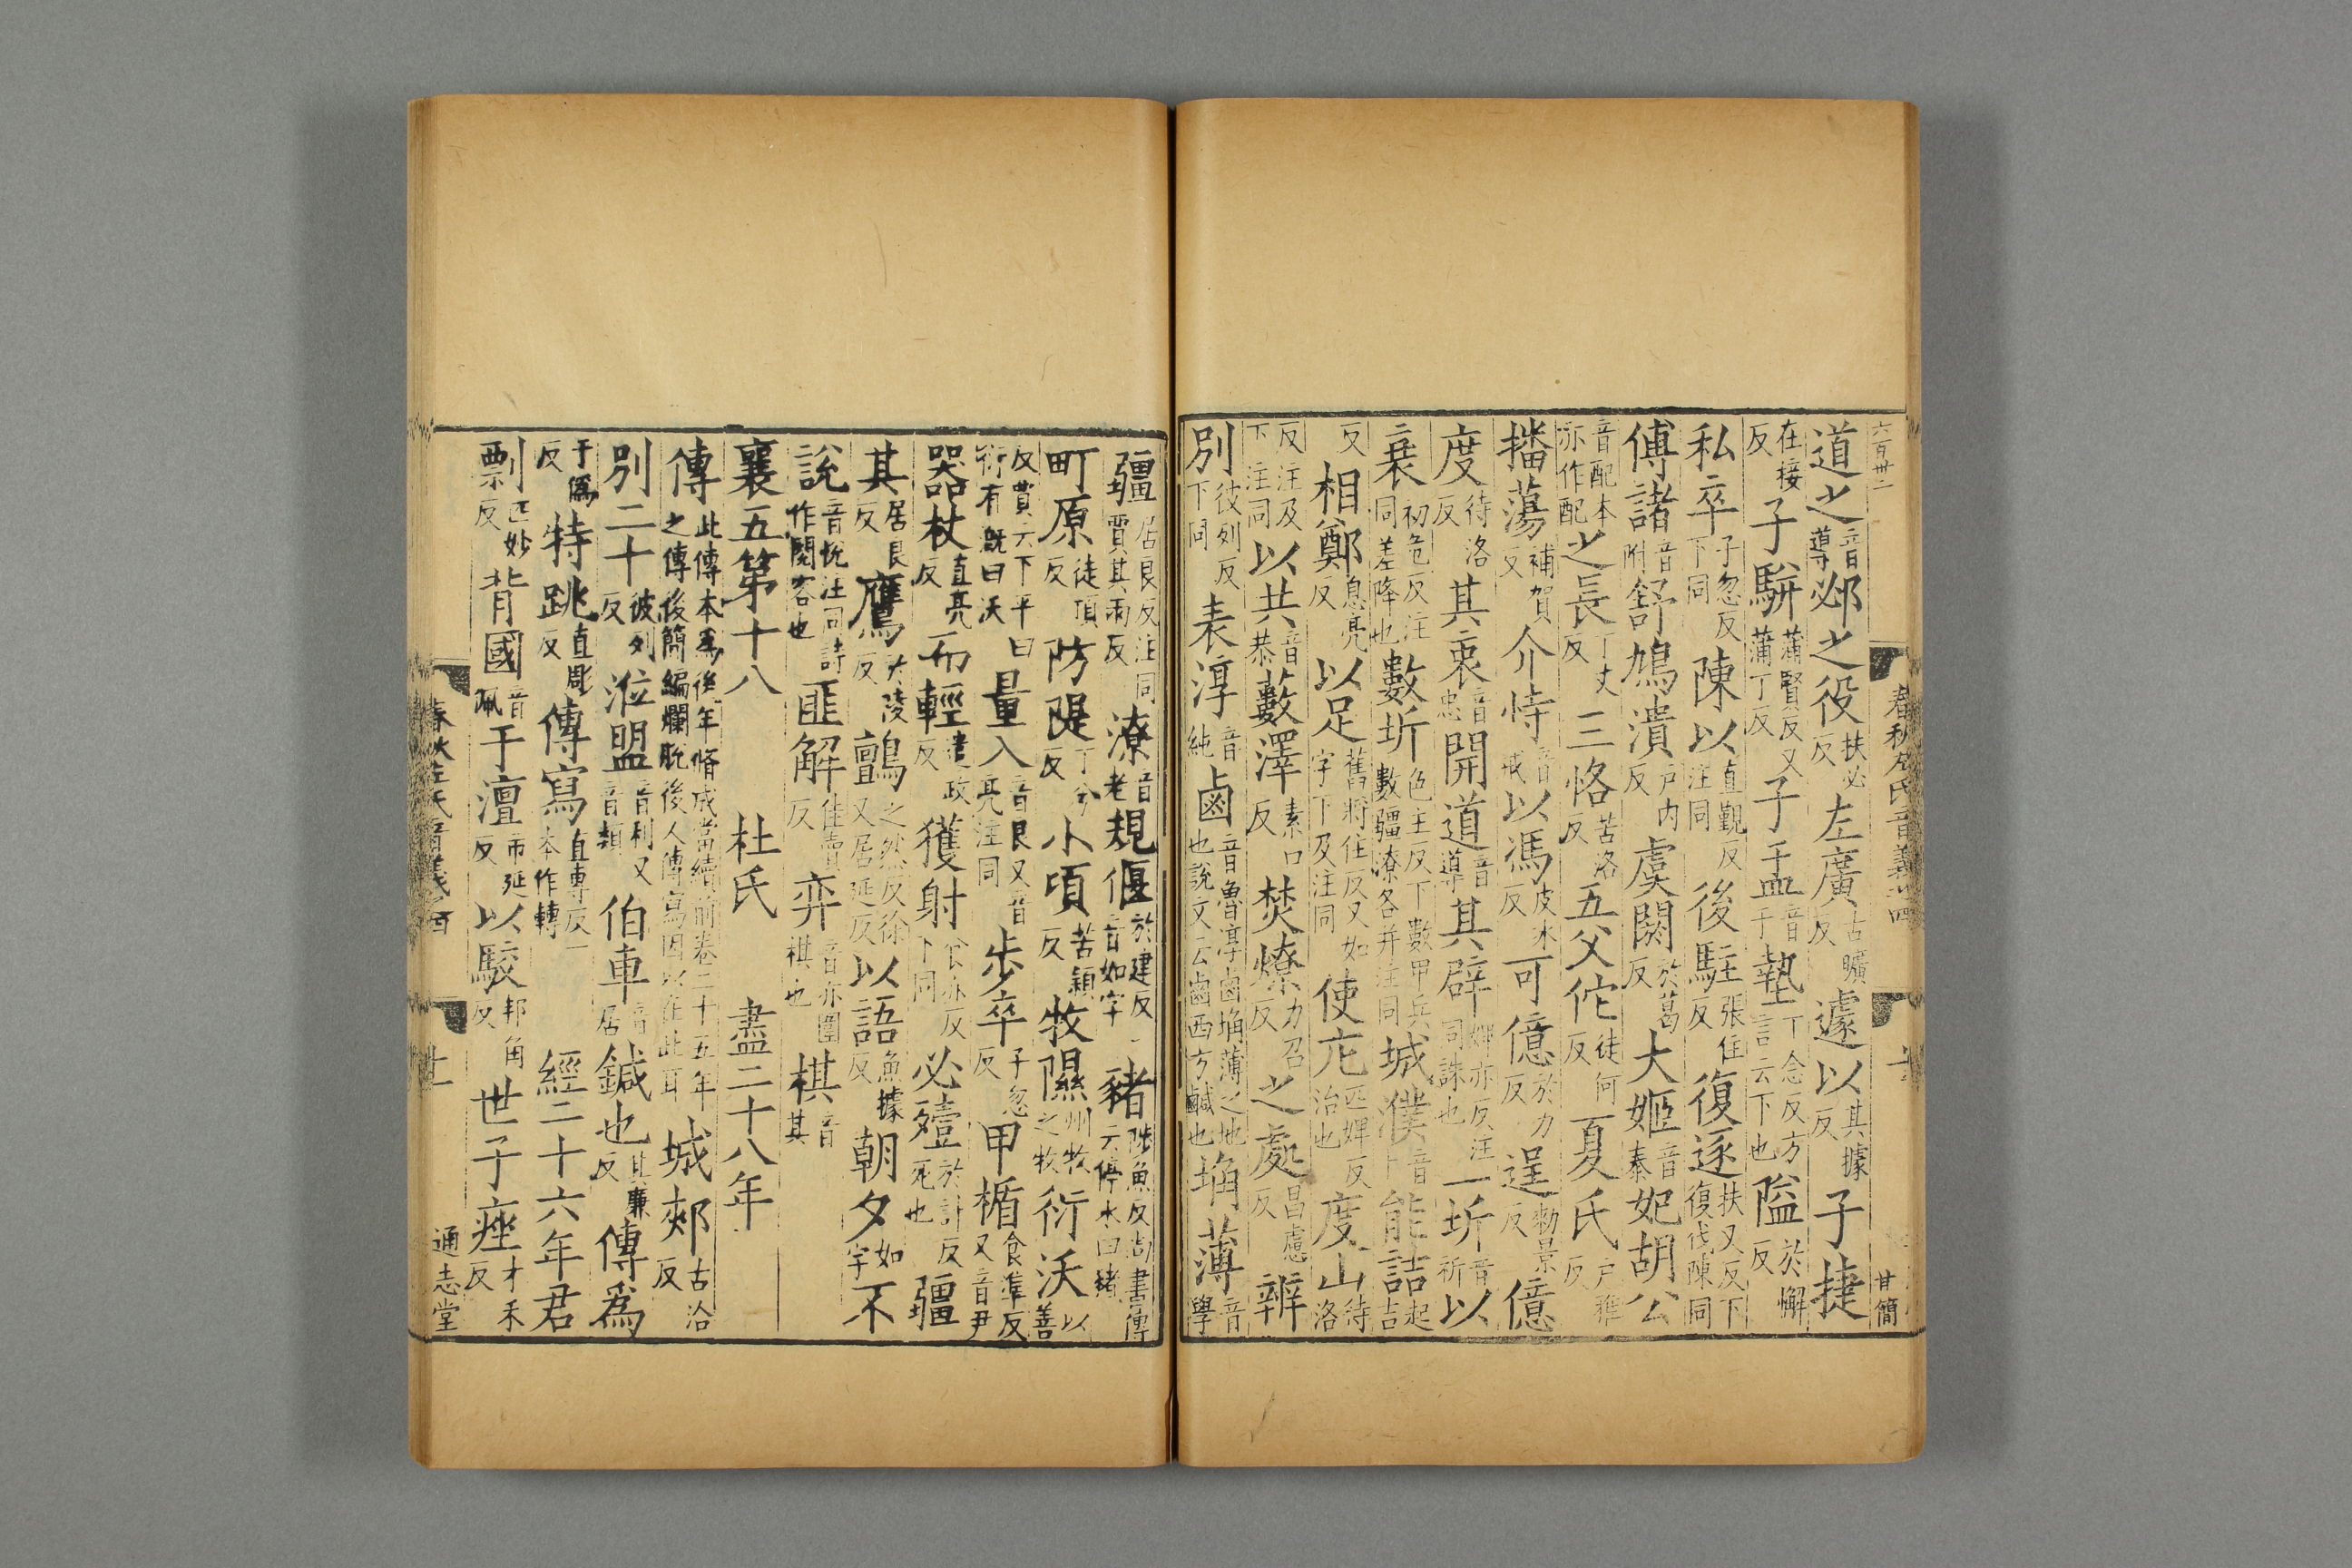 六百卅二
道之音導邲之役扶必反左廣古曠反遽以其據反子捷
在接反子騈蒲賢反又蒲丁反子盂音于墊丁念反方言云下也隘於懈反
私卒子忽反下同陳以直覲反注同後駐張住反復逐扶又反下復伐陳同
傅諸音附舒鳩潰戶内反虞閼於葛反大姬音泰妃胡公
音配本亦作配之長丁丈反三恪苦洛反五父佗徒何反夏氏戶雅反
播蕩補賀反介恃音戒以馮皮冰反可億於力反逞勑景反億
度待洛反其衷音忠開道音導其辟婢亦反注同誅也一圻音祈以
衰初危反注同差降也數圻色主反下數甲兵數疆潦各并注同城濮音卜能詰起吉
反相鄭息亮反以足舊將住反又如字下及注同使庀匹婢反治也度山待洛
反注及下注同以共音恭藪澤素口反焚燎力召反之處昌慮反辨
別彼列反下同表淳音純鹵音魯淳鹵埆薄之地也說文云鹵西方鹹也埆薄音學
春秋左氏音義之四
甘簡
疆居艮反注同賈其兩反潦音老規偃於建反音如字豬陟魚反尚書傳云停水曰豬
町原徒頂反防隄丁兮反小頃苦穎反牧隰州牧之牧衍沃以善
反賈云下平曰衍有溉曰沃量入音艮又音亮注同步卒子忽反甲楯食準反又音尹
器杖直亮反而輕遣政反獲射食亦反下同必殪於計反死也疆
其居艮反鷹大陵反鸇之然反徐又居延反以語魚據反朝夕如字不
說音悅注同詩作閱容也匪解佳賣反弈音亦圍棋也棋音其
襄五第十八 杜氏 盡二十八年
傳此傳本爲後年脩成當續前卷二十五年之傳後簡編爛脫後人傳寫因以在此耳城郟古洽反
別二十彼列反涖盟音利又音類伯車音居鍼也其廉反傳爲
于僞反特跳直彫反傳寫直專反一本作轉經二十六年君
剽匹妙反背國音珮于澶市延反以駮邦角反世子痤才禾反
春秋左氏音義之四
廿一
通志堂